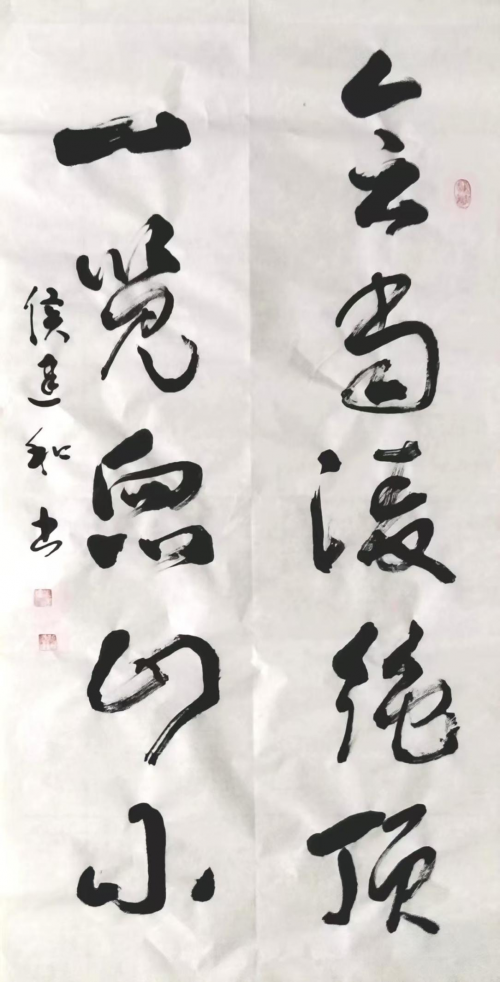 会当凌绝顶
一览众山小
侯建和书